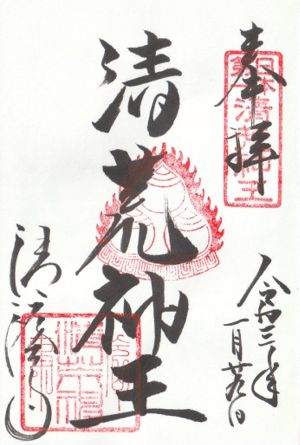 奉拝
清荒神王
令和三年
一月
清澄寺